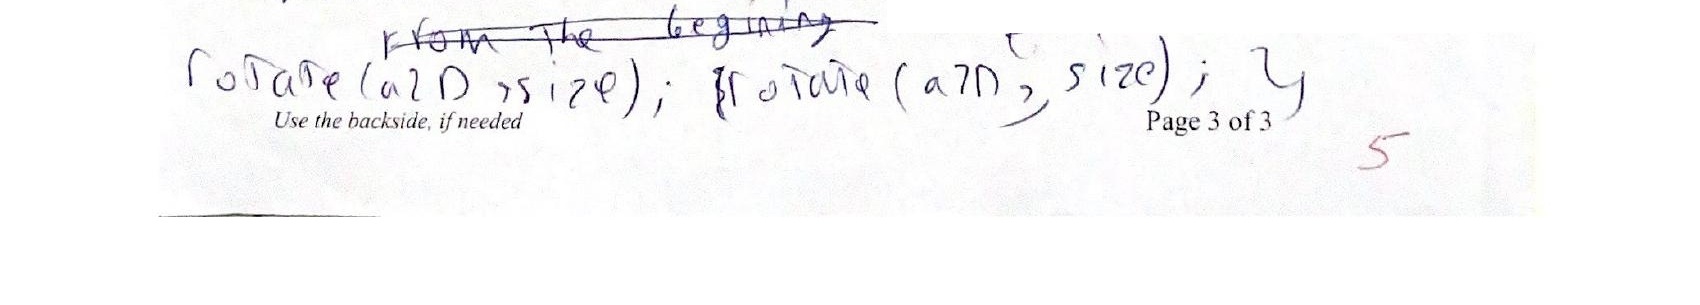 From The begining
rotate(a2D,size); rotate(a2D, size); }
Use the backside, if needed
Page 3 of 3
5